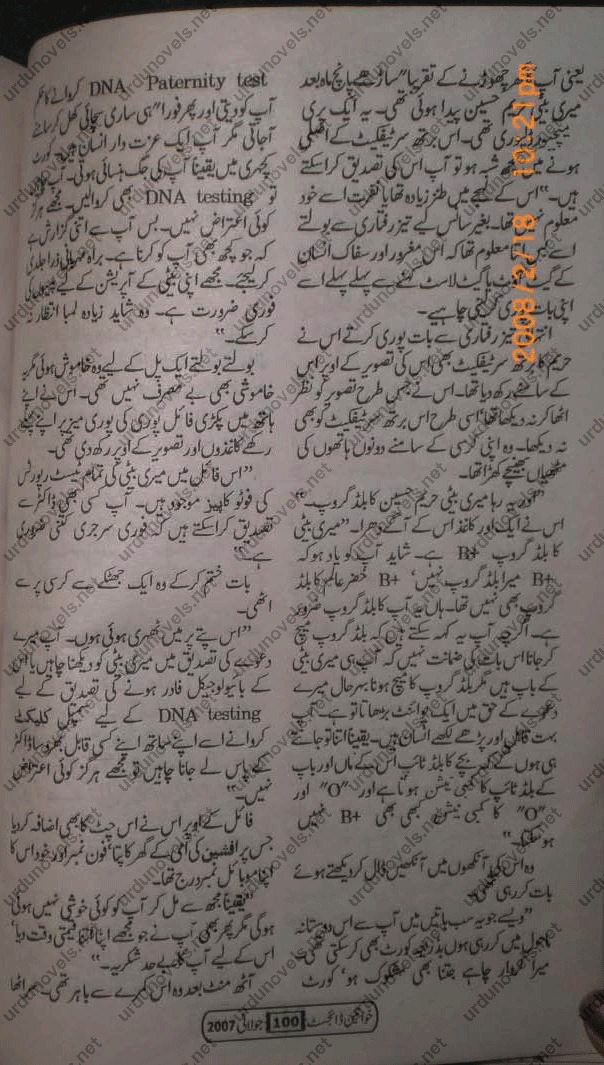 یعنی آپ کے گھر چھوڑنے کے تقریباً ساڑھے پانچ ماہ بعد
میری بیٹی حریم حسین پیدا ہوئی تھی۔ یہ ایک پری
میچیور ڈلیوری تھی۔ اس برتھ سرٹیفکیٹ کے اصلی
ہونے میں کچھ شبہ ہو تو آپ اس کی تصدیق کرا سکتے
ہیں۔“ اس کے لہجے میں طنز زیادہ تھا یا نفرت اسے خود
معلوم نہیں تھا۔ بغیر سانس لیے تیز رفتاری سے بولتے
اسے بس اتنا معلوم تھا کہ اس مغرور اور سفاک انسان
کے گیٹ آؤٹ یا گیٹ لاسٹ کہنے سے پہلے پہلے اسے
اپنی بات پوری کرنی چاہیے۔
انتہائی تیز رفتاری سے بات پوری کرتے اس نے
حریم کا برتھ سرٹیفکیٹ بھی اس کی تصویر کے اوپر اس
کے سامنے رکھ دیا تھا۔ اس نے جس طرح تصویر کو نظر
اٹھا کر نہ دیکھا تھا اسی طرح اس برتھ سرٹیفکیٹ کو بھی
نہ دیکھا۔ وہ اپنی کرسی کے سامنے دونوں ہاتھوں کی
مٹھیاں بھینچے کھڑا تھا۔
”اور یہ رہا میری بیٹی حریم حسین کا بلڈ گروپ۔“
اس نے ایک اور کاغذ اس کے آگے دھرا۔ ”میری بیٹی
کا بلڈ گروپ B+ ہے۔ شاید آپ کو یاد ہو کہ
B+ میرا بلڈ گروپ نہیں‘ B+ خضر عالم کا بلڈ
گروپ بھی نہیں تھا۔ ہاں یہ آپ کا بلڈ گروپ ضرور
ہے۔ اگرچہ آپ یہ کہہ سکتے ہیں کہ بلڈ گروپ میچ
کر جانا اس بات کی ضمانت نہیں کہ آپ ہی میری بیٹی
کے باپ ہیں مگر بلڈ گروپ کا میچ ہونا بہرحال میرے
دعوے کے حق میں ایک پوائنٹ بڑھاتا تو ہے۔ آپ
بہت قابل اور پڑھے لکھے انسان ہیں۔ یقیناً اتنا تو جانتے
ہی ہوں گے کہ بچے کا بلڈ ٹائپ اس کے ماں اور باپ
کے بلڈ ٹائپ کا کمبی نیشن ہوتا ہے اور ”O“ اور
”O“ کا کمبی نیشن کبھی بھی B+ نہیں
ہو سکتا۔“
وہ اس کی آنکھوں میں آنکھیں ڈال کر دیکھتے ہوئے
بات کر رہی تھی۔
”ویسے جو یہ سب باتیں میں آپ سے اس دوستانہ
ماحول میں کر رہی ہوں بذریعہ کورٹ بھی کر سکتی تھی۔
میرا کردار چاہے جتنا بھی مشکوک ہو‘ کورٹ
DNA Paternity test کروانے کا حکم
آپ کو دیتی اور پھر فوراً ہی ساری سچائی کھل کر سامنے
آجاتی مگر آپ ایک عزت دار انسان ہیں۔ کورٹ
کچہری میں یقیناً آپ کی جگ ہنسائی ہوتی۔ آپ چاہیں
تو DNA testing بھی کروالیں۔ مجھے ہرگز
کوئی اعتراض نہیں۔ بس آپ سے اتنی گزارش ہے
کہ جو کچھ بھی آپ کو کرنا ہے۔ براہ مہربانی ذرا جلدی
کر لیجیے۔ مجھے اپنی بیٹی کے آپریشن کے لیے پیسوں کی
فوری ضرورت ہے۔ وہ شاید زیادہ لمبا انتظار نہ
کر سکے۔“
بولتے بولتے ایک پل کے لیے وہ خاموش ہوئی مگر یہ
خاموشی بھی بے مصرف نہیں تھی۔ اس نے اپنے
ہاتھ میں پکڑی فائل پوری کی پوری میز پر اپنے پہلے
رکھے کاغذوں اور تصویر کے اوپر رکھ دی تھی۔
”اس فائل میں میری بیٹی کی تمام ٹیسٹ رپورٹس
کی فوٹو کاپیز موجود ہیں۔ آپ کسی بھی ڈاکٹر سے
تصدیق کرا سکتے ہیں کہ فوری سرجری کتنی ضروری
ہے۔“
بات ختم کر کے وہ ایک جھٹکے سے کرسی پر سے
اٹھی۔
”اس پتے پر میں ٹھہری ہوئی ہوں۔ آپ میرے
دعوے کی تصدیق میں میری بیٹی کو دیکھنا چاہیں یا اس
کے بائیولوجیکل فادر ہونے کی تصدیق کے لیے
DNA testing کے لیے سیمپل کلیکٹ
کروانے اسے اپنے ساتھ اپنے کسی قابل بھروسا ڈاکٹر
کے پاس لے جانا چاہیں تو مجھے ہرگز کوئی اعتراض
نہیں۔“
فائل کے اوپر اس نے اس چٹ کا بھی اضافہ کر دیا
جس پر افشین کی امی کے گھر کا پتا‘ فون نمبر اور خود اس کا
اپنا موبائل نمبر درج تھا۔
”یقیناً مجھ سے مل کر آپ کو کوئی خوشی نہیں ہوئی
ہوگی مگر پھر بھی آپ نے جو مجھے اپنا اتنا قیمتی وقت دیا‘
اس کے لیے آپ کا بے حد شکریہ۔“
آٹھ منٹ بعد وہ اس کمرے سے باہر تھی۔
خواتین ڈائجسٹ 100 جولائی 2007
2008/2/18 10:21pm
urdunovels.net